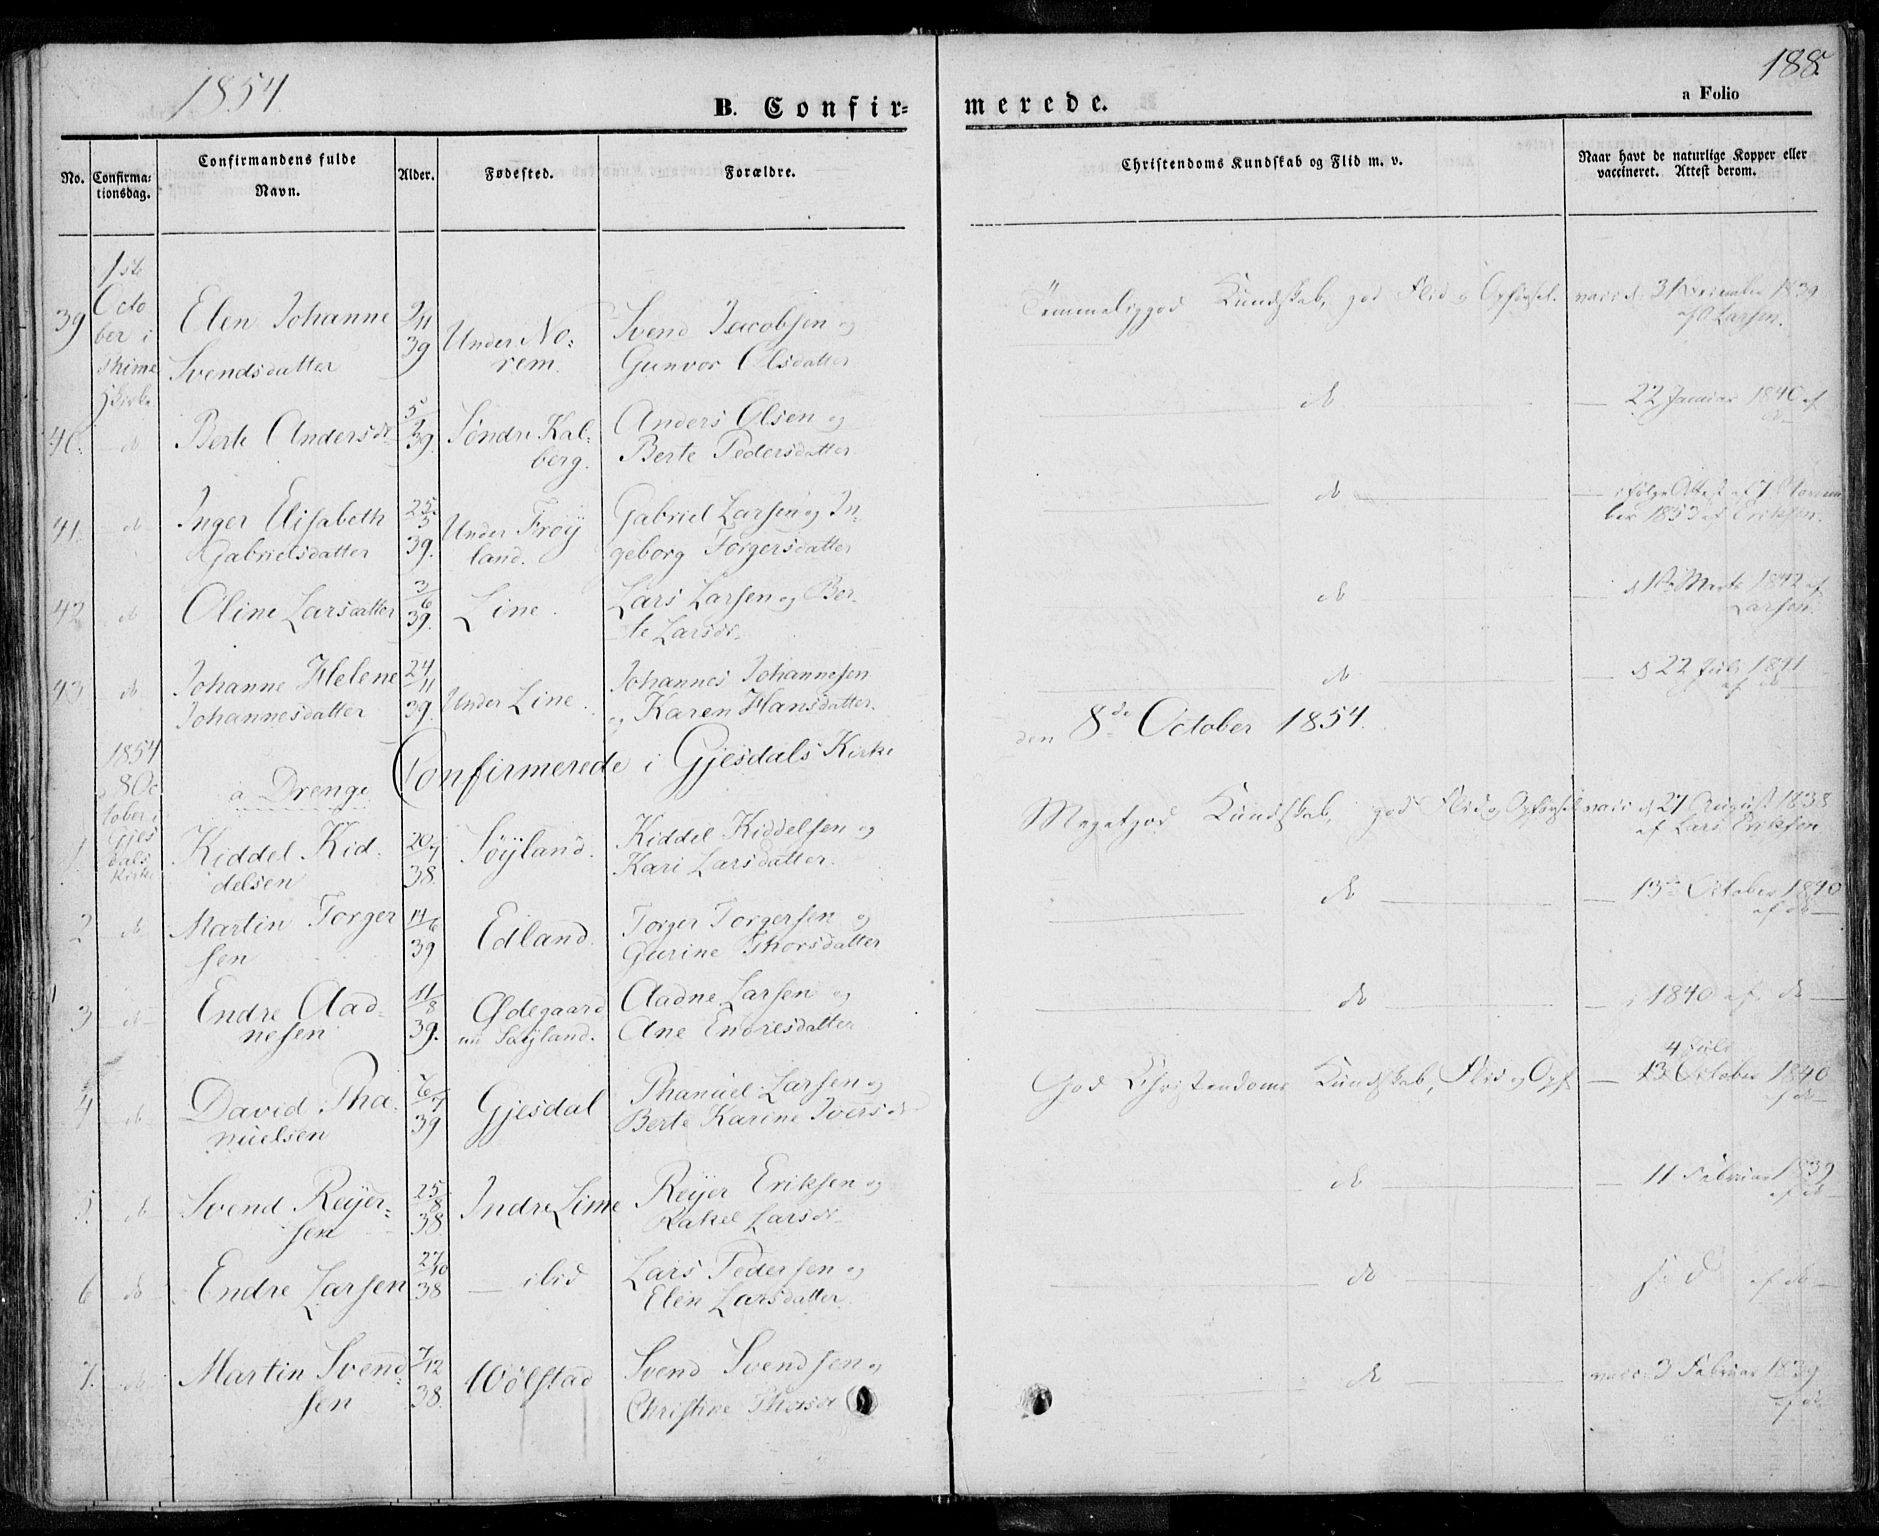 1854
188.
B. Confir= merede.
a Folio
No.
Confirma=
tionsdag.
Confirmandens fulde
Navn.
Alder.
Fødested.
Forældre.
Christendoms Kundskab og Flid m. v.
Naar havt de naturlige Kopper eller
vaccineret. Attest derom.
1ste
Octo
ber i
Thime
Kirke
39 Elen Johanne 2/11 Svend Jacobsen og Temmeliggod Kundskab, god Flid og Opførsel. vacc. d. 31 December 1839
Svendsdatter 39 Under No= rem. Gunvor Olsdatter af O Larsen.
40. do Berte Andersdr 5/2 39. Søndre Kal= berg. Anders Olsen og do 22 Januar 1840 af
Berte Pedersdatter do
41. do Inger Elisabeth 25/5 Under Frøy Gabriel Larsen og In= do ifølge Attest af 7 Novem
Gabrielsdatter 39. land. geborg Torgersdatter ber 1853 af Eriksen.
42 do Oline Larsdatter 3/6 39. Line. Lars Larsen og Ber= do Marts 1842 af
te Larsdr Larsen.
43 do Johanne Helene 24/11 Under Line. Johannes Johannesen do d 22 Juli 1841
Johannesdatter 39. og Karen Hansdatter. af do
Confirmerede i Gjesdals Kirke den 8de October 1854.
1854
8 Oc
tober i
Gjes
dals
Kirke
a Drenge
1. Kiddel Kid= 20/7 Søyland. Kiddel Kiddelsen og Megetgod Kundskab, god Flid og Opførsel vacc. d 27 August 1838
delsen 38. Kari Larsdatter. af Lars Eriksen
2 do Martin Torger 14/6 Edland. Torger Torgersen og do 13de October 1840
sen 39 Gurine Thorsdatter af do
3 do Endre Aad= 11/8 Ødegaard Aadne Larsen og do i 1840 af do
nesen 39. un Søyland. Ane Endresdatter
4 Juli
4 do David Tha= 6/7 Gjesdal Thanuel Larsen og God Christendoms Kundskab, Flid og Opf 13 October 1840
nuelsen 39 Berte Karine Iversdr af do
5. do Svend Reijer= 25/8 Indre Lime Reijer Eriksen og do 11 Februar 1839
sen 38. Rakel Larsdr af do
6 do Endre Larsen 27/10 38 ibid Lars Pedersen og do s. d af do
Elen Larsdatter.
7. do Martin Svend= 7/12 Wølstad Svend Svendsen og do vacc. 3 Februar 1839
sen 38. Christine Thorsdr af do